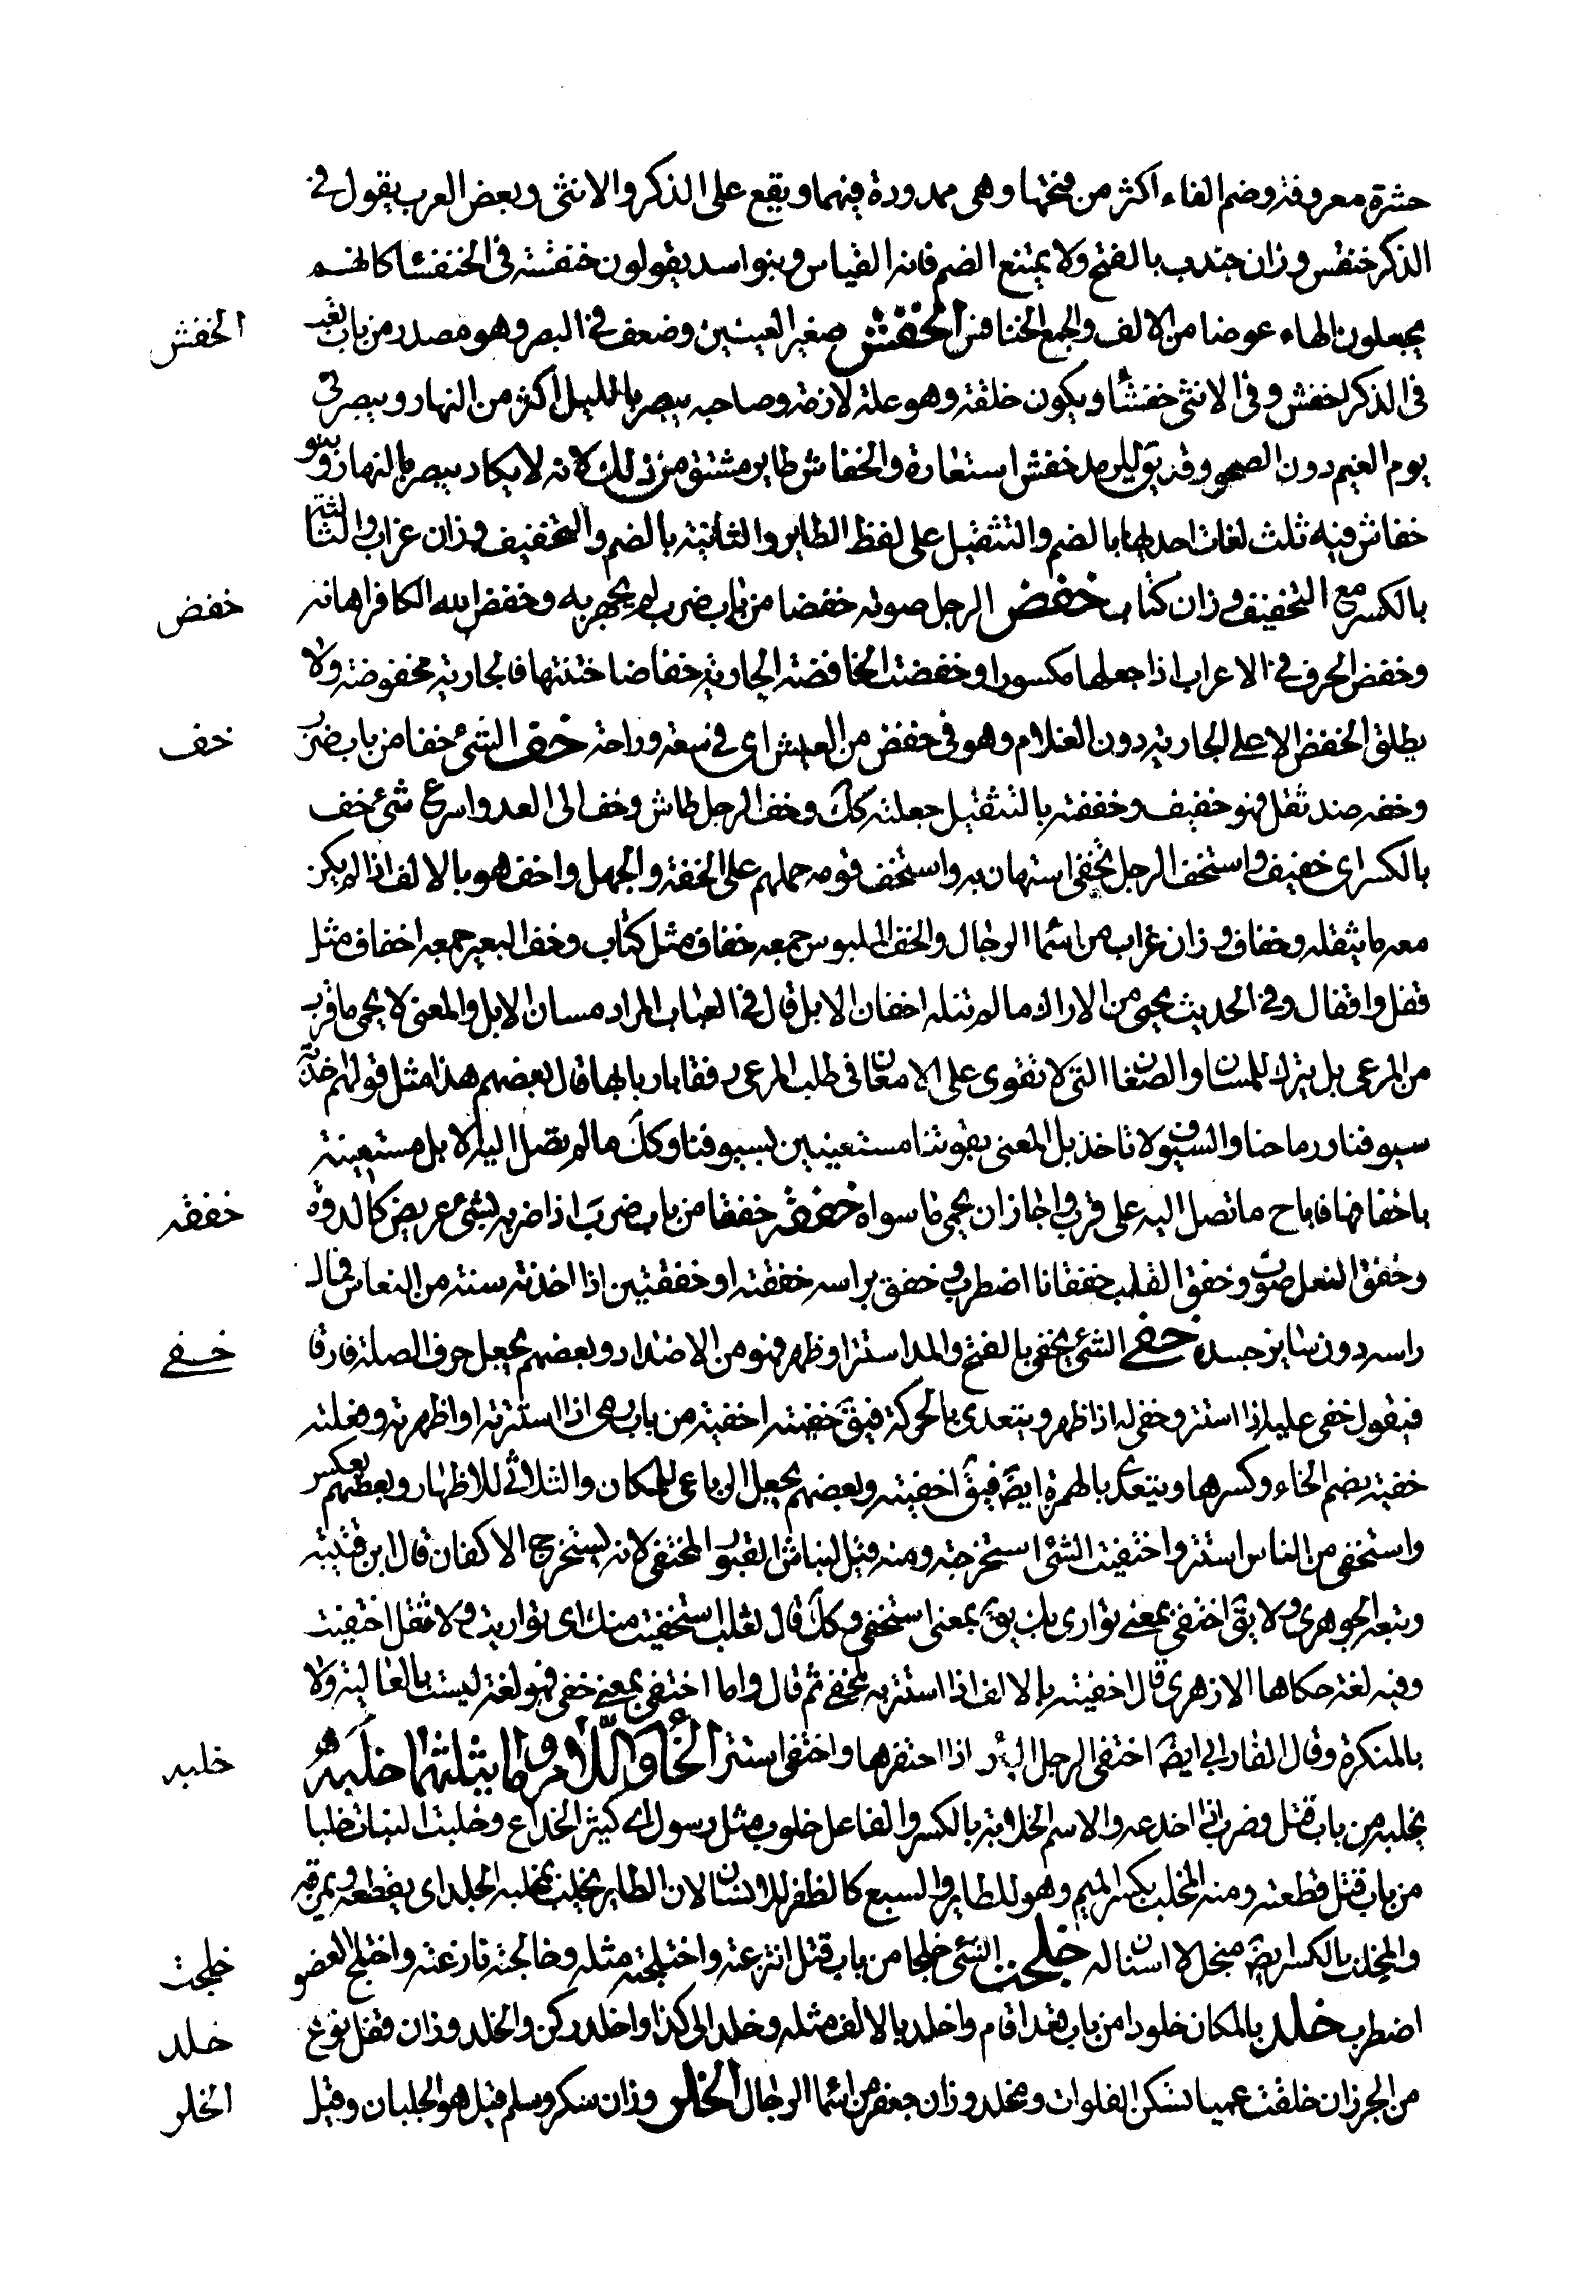 حشرة معروفة وضم الفاء اكثر من فتحها وهى ممدودة فيهما ويقع على الذكر والانثى وبعض العرب يقول فى
الذكر خنفس وزان جندب بالفتح ولا يمتنع الضم فانه القياس وبنو اسد يقولون خنفسة فى الخنفسا كانهم
يجعلون الهاء عوضا من الالف والجمع الخنافس الخفش صغر العينين وضعف فى البصر وهو مصدر من باب تعب
الخفش
فى الذكر اخفش وفى الانثى خفشا ويكون خلقة وهو علة لازمة وصاحبه يبصر بالليل اكثر من النهار ويبصر فى
يوم الغيم دون الصحو وقد يق للرمد خفش استعارة والخفاش طاير مشتق من ذلك لانه لا يكاد يبصر بالنهار وبنو
خفاش فيه ثلث لغات احديها بالضم والتثقيل على لفظ الطاير والثانية بالضم والتخفيف وزان غراب والثالثة
بالكسر مع التخفيف وزان كتاب خفض الرجل صوته خفضا من باب ضرب لم يجهر به وخفض الله الكافر اهانه
خفض
وخفض الحرف فى الاعراب اذا جعلها مكسورا وخفضت الخافضة الجارية خفاضا ختنتها فالجارية مخفوضة ولا
يطلق الخفض الا على الجارية دون الغلام وهو فى خفض من العيش اى فى سعة وراحة خف الشئ خفا من باب ضرب
خف
وخفه ضد ثقل فهو خفيف وخففته بالتثقيل جعلته كك وخف الرجل طاش وخف الى العدو اسرع شئ خف
بالكسر اى خفيف واستخف الرجل بحقى استهان به واستخف قومه حملهم على الخفة والجهل واخف هو بالالف اذا لم يكن
معه ما يثقله وخفاف وزان غراب من اسما الرجال والخف الملبوس جمعه خفاف مثل كتاب وخف البعير جمعه اخفاف مثل
قفل واقفال وفى الحديث يحمى من الاراك ما لم تنله اخفاف الابل قال فى العباب المراد مسان الابل والمعنى لا يحمى ما قرب
من المرعى بل يترك للمسان والضعاف التى لا تقوى على الامعان فى طلب المرعى رفقا باربابها قال بعضهم هذا مثل قولهم اخذته
سيوفنا ورماحنا والسيوف لا تاخذ بل المعنى بقوتنا مستعينين بسيوفنا وكك ما لم تصل اليه الابل مستعينة
باخفافها فاباح ما تصل اليه على قرب واجاز ان يحمى ما سواه خفقه خفقا من باب ضرب اذا ضربه بشئ عريض كالدرة
خفقه
وخفق النعل صوت وخفق القلب خفقانا اضطرب وخفق براسه خفقة او خفقتين اذا اخذته سنة من النعاس فمال
راسه دون ساير جسده خفى الشئ يخفى بالفتح والمد استتر او ظهر فهو من الاضداد وبعضهم يجعل حرف الصلة فارقا
خفى
فيقول خفى عليه اذا استتر وخفى له اذا ظهر ويتعدى بالحركة فيق خفيته اخفيه من باب رمى اذا سترته او اظهرته وفعلته
خفية بضم الخاء وكسرها ويتعدى بالهمزة ايض فيق اخفيته وبعضهم يجعل الرباعى للكتمان والثلاثى للاظهار وبعضهم يعكس
واستخفى من الناس استتر واختفيت الشئ استخرجته ومنه قيل لنباش القبور المختفى لانه يستخرج الاكفان قال ابن قتيبة
وتبعه الجوهرى ولا يق اختفى بمعنى توارى بل يق بمعنى استخفى وكك قال ثعلب استخفيت منك اى تواريت ولا تقل اختفيت
وفيه لغة حكاها الازهرى قال اخفيته بالالف اذا استتر به فخفى ثم قال واما اختفى بمعنى خفى فهو لغة ليست بالعالية ولا
بالمنكرة وقال الفارابى ايض اختفى الرجل البئر اذا احتفرها واختفى استتر الخا واللام وما يثلثهما خلبه
خلبه
يخلبه من باب قتل وضرب اى اخدعه والاسم الخلابة بالكسر والفاعل خلوب مثل رسول اى كثير الخداع وخلبت النبات خلبا
من باب قتل قطعته ومنه المخلب بكسر الميم وهو للطاير والسبع كالظفر للانسان لان الطاير يخلب بمخلبه الجلد اى يقطعه ويمزقه
والمخلب بالكسر ايض منجل لا اسنان له خلجت الشئ خلجا من باب قتل انتزعته واختلجته مثله وخالجته نازعته واختلج العضو
خلجت
اضطرب خلد بالمكان خلودا من باب قعد اقام واخلد بالالف مثله وخلد الى كذا واخلد ركن والخلد وزان قفل نوع
خلد
من الجرذان خلقت عميا تسكن الفلوات ومخلد وزان جعفر من اسما الرجال الخلر وزان سكر وسلم قيل هو الجلبان وقيل
الخلر